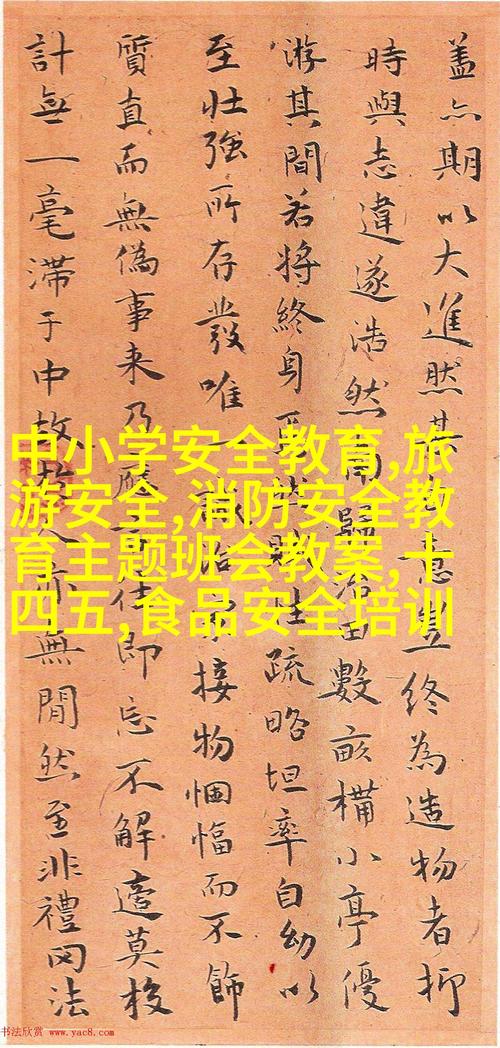 蓋亦期以大進然其意豈終為造物者抑
時與志違遂浩然南歸田數畝構小亭優
游其間若將終身焉性疏略坦率自幼以
至壯強所存發唯一接物悃愊而不飾
質直而無偽事来乃應即忘不解莫校
計無一毫滯于中故人亦無間然至非禮罔法
中小学安全教育,旅
游安全,消防安全教
育主题班会教案,十
四五,食品安全培训
书法欣赏 www.yac8.com